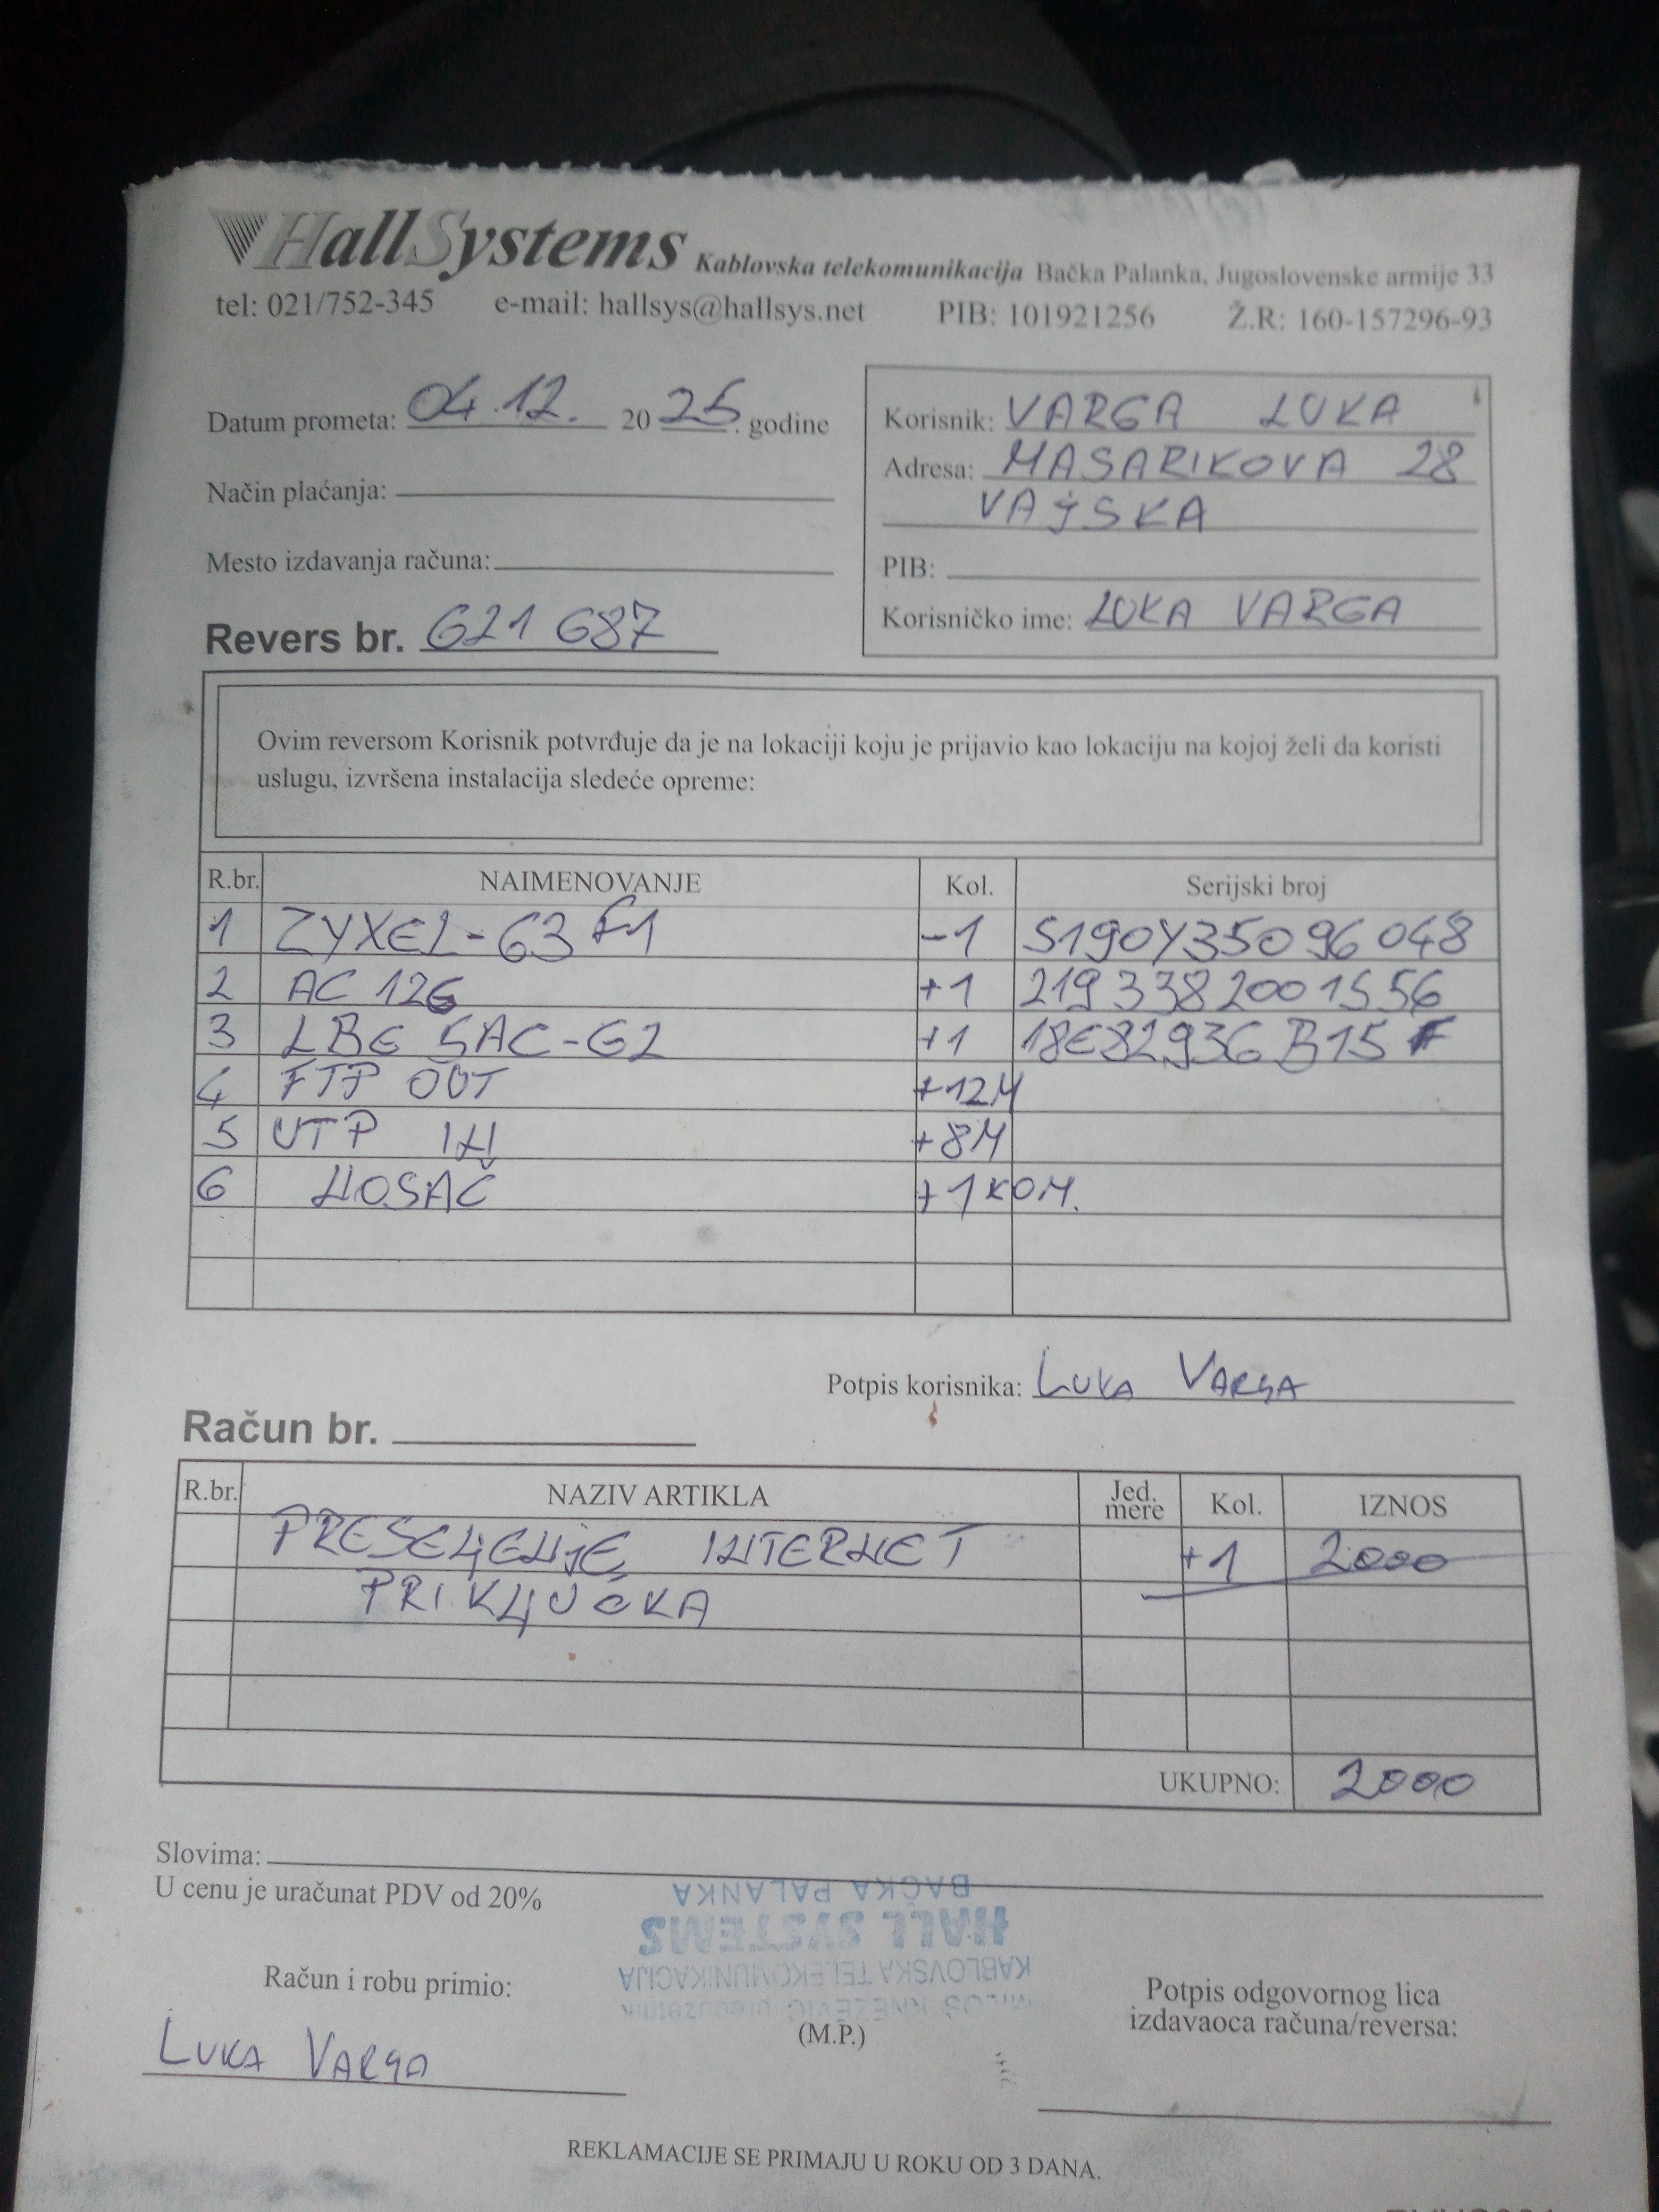 HallSystems Kablovska telekomunikacija Bačka Palanka, Jugoslovenske armije 33
tel: 021/752-345 e-mail: hallsys@hallsys.net PIB: 101921256 Ž.R: 160-157296-93
Datum prometa: 04.12. 2025. godine
Način plaćanja:
Mesto izdavanja računa:
Revers br. 621 687
Korisnik: VARGA LUKA
Adresa: MASARIKOVA 28
VAJSKA
PIB:
Korisničko ime: LUKA VARGA
Ovim reversom Korisnik potvrđuje da je na lokaciji koju je prijavio kao lokaciju na kojoj želi da koristi
uslugu, izvršena instalacija sledeće opreme:
R.br. NAIMENOVANJE Kol. Serijski broj
1 ZYXEL- -1 S190Y35096048
2 AC 12G +1 2193382001556
3 LBE 5AC-G2 +1 18E82936B15F
4 FTP OUT +12M
5 UTP IN +8M
6 NOSAČ +1 KOM.
Potpis korisnika: LUKA VARGA
Račun br.
R.br. NAZIV ARTIKLA Jed. mere Kol. IZNOS
PRESELJENJE INTERNET +1 2000
PRIKLJUČKA
UKUPNO: 2000
Slovima:
U cenu je uračunat PDV od 20%
MILOŠ KNEŽEVIĆ preduzetnik
KABLOVSKA TELEKOMUNIKACIJA
HALL SYSTEMS
BAČKA PALANKA
Račun i robu primio:
LUKA VARGA
(M.P.)
Potpis odgovornog lica
izdavaoca računa/reversa:
REKLAMACIJE SE PRIMAJU U ROKU OD 3 DANA.